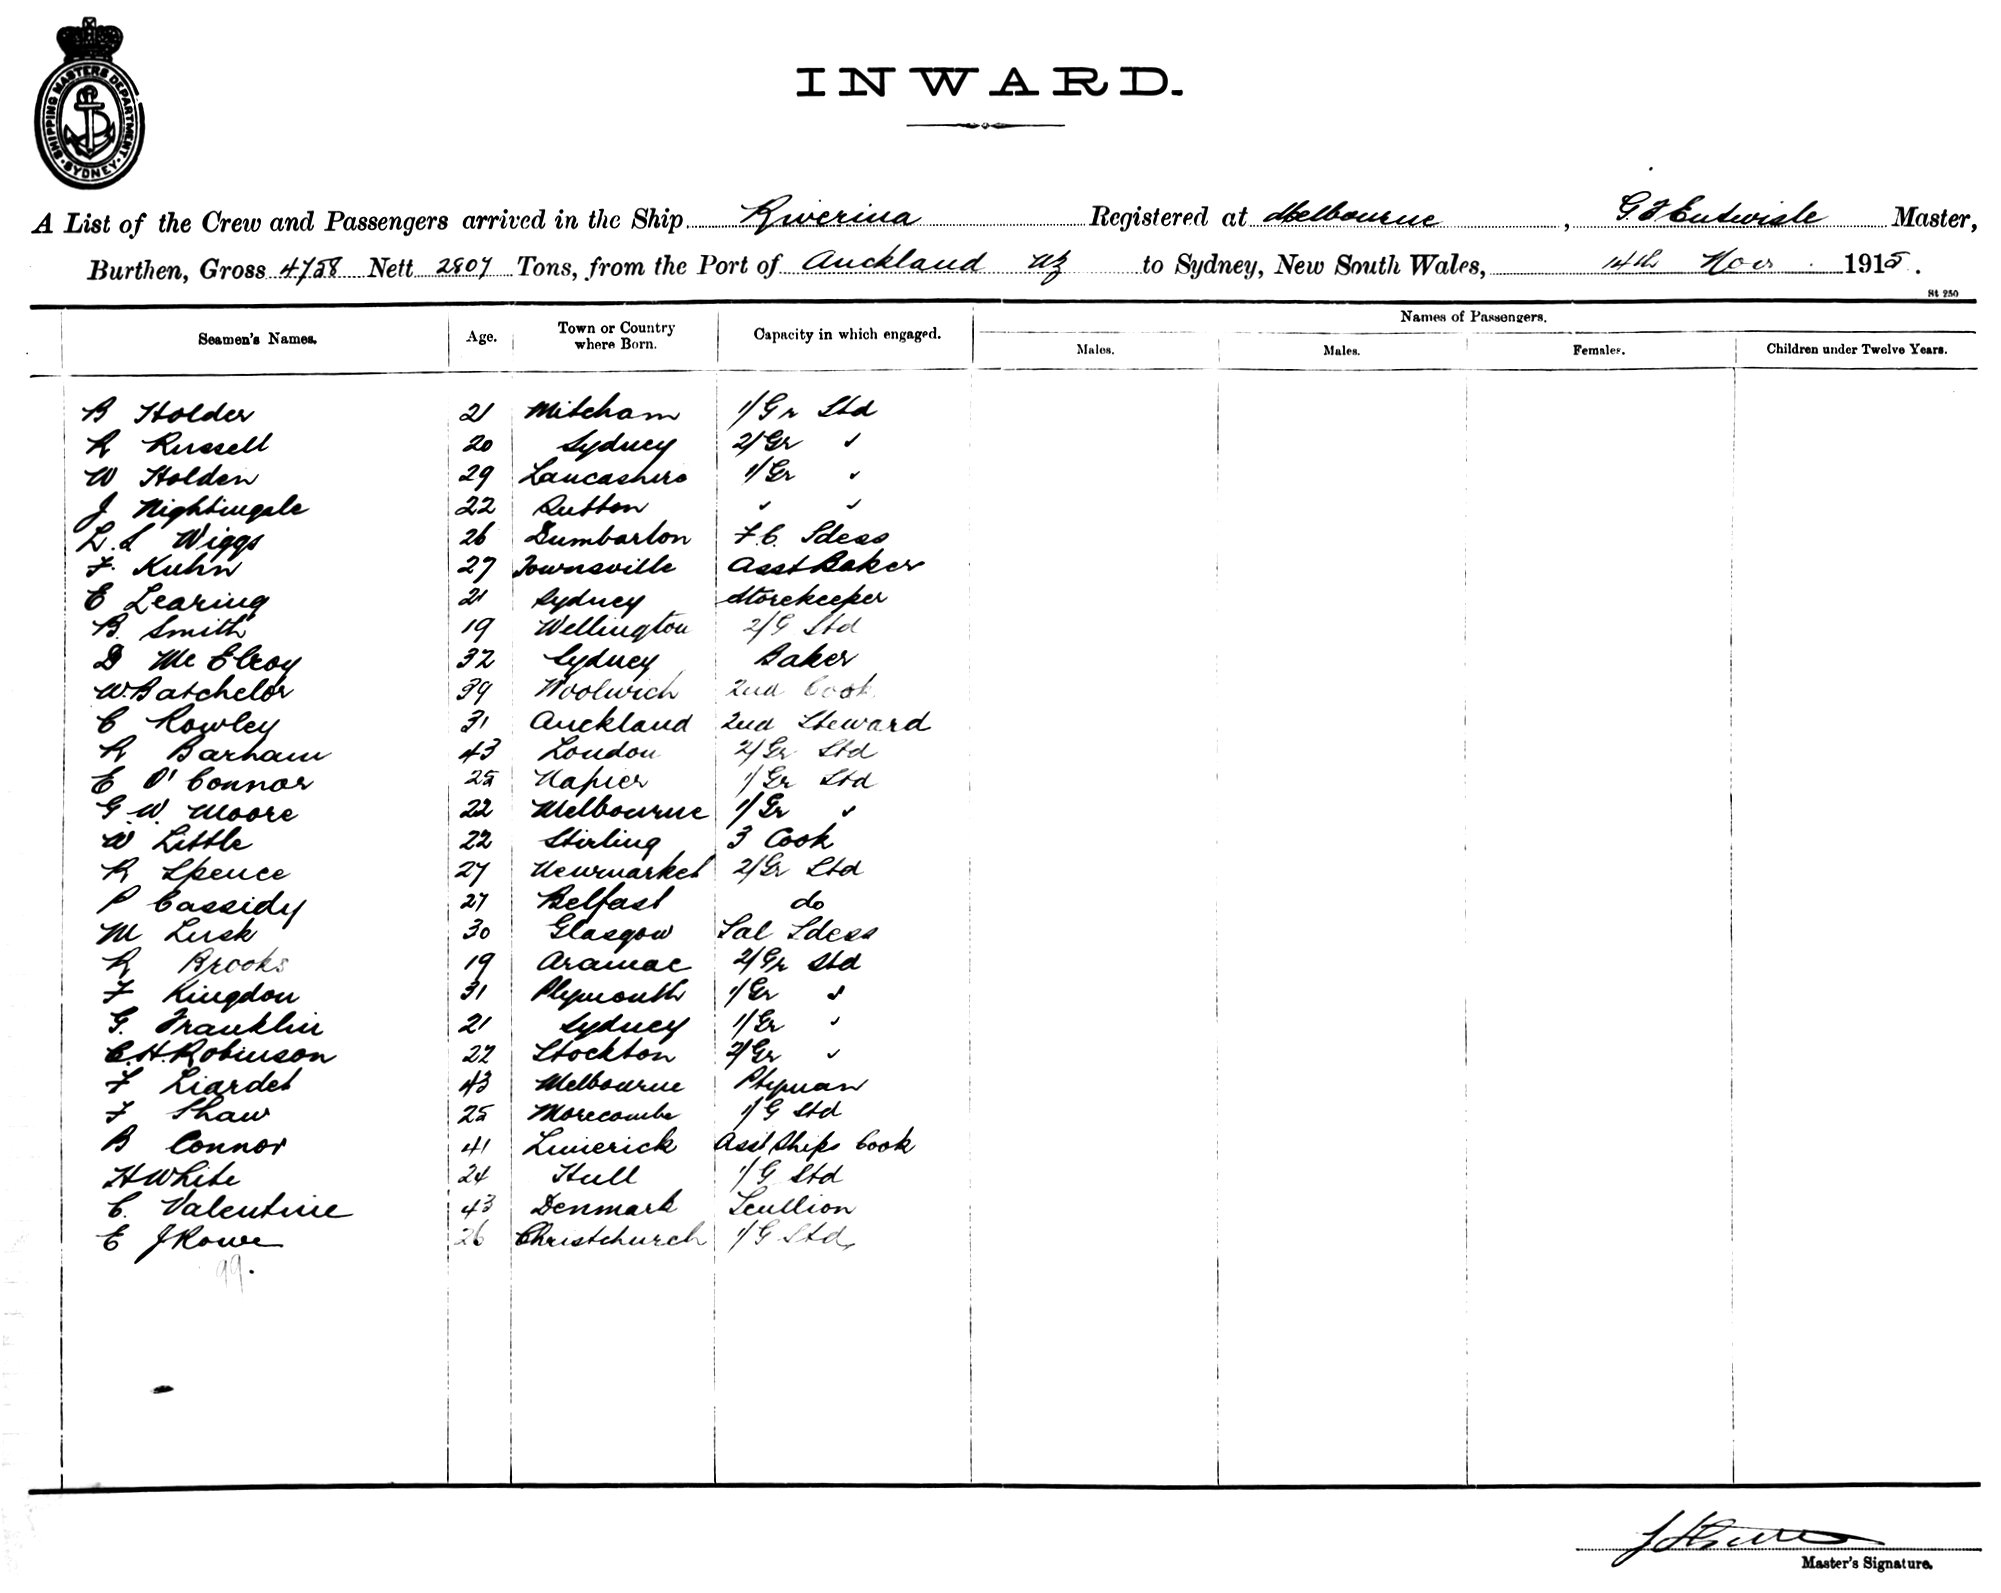 SHIPPING MASTERS DEPARTMENT · SYDNEY ·
INWARD.
A List of the Crew and Passengers arrived in the Ship Riverina Registered at Melbourne, G F Entwisle Master,
Burthen, Gross 4758 Nett 2807 Tons, from the Port of Auckland NZ to Sydney, New South Wales, 14th Nov. 1915.
St 250
Seamen's Names. Age. Town or Country where Born. Capacity in which engaged. Names of Passengers.
Males. Males. Females. Children under Twelve Years.
B Holder 21 Mitcham 1/Gr Std
R Russell 20 Sydney 2/Gr "
W Holden 29 Lancashire 1/Gr "
J Nightingale 22 Sutton " "
L. L Wiggs 26 Dumbarton F.C. Sdess
F. Kuhn 27 Townsville Asst Baker
E Learing 21 Sydney Storekeeper
B. Smith 19 Wellington 2/G Std
D Mc Elroy 32 Sydney Baker
W. Batchelor 39 Woolwich 2nd Cook
C Rowley 31 Auckland 2nd Steward
R Barham 43 London 2/Gr Std
E O'Connor 25 Napier 1/Gr Std
G. W. Moore 22 Melbourne 1/Gr "
W Little 22 Stirling 3 Cook
R Spence 27 Newmarket 2/Gr Std
P Cassidy 27 Belfast do
M Lusk 30 Glasgow Sal Sdess
R Brooks 19 Aramac 2/Gr Std
F Kingdon 31 Plymouth 1/Gr "
G. Franklin 21 Sydney 1/Gr "
C. H. Robinson 22 Stockton 2/Gr "
F Liardet 43 Melbourne Ptryman
F Shaw 25 Morecombe 1/G Std
B Connor 41 Limerick Asst Ships Cook
H White 24 Hull 1/G Std
C. Valentine 43 Denmark Scullion
E J Rowe 26 Christchurch 1/G Std
99.
Master's Signature.